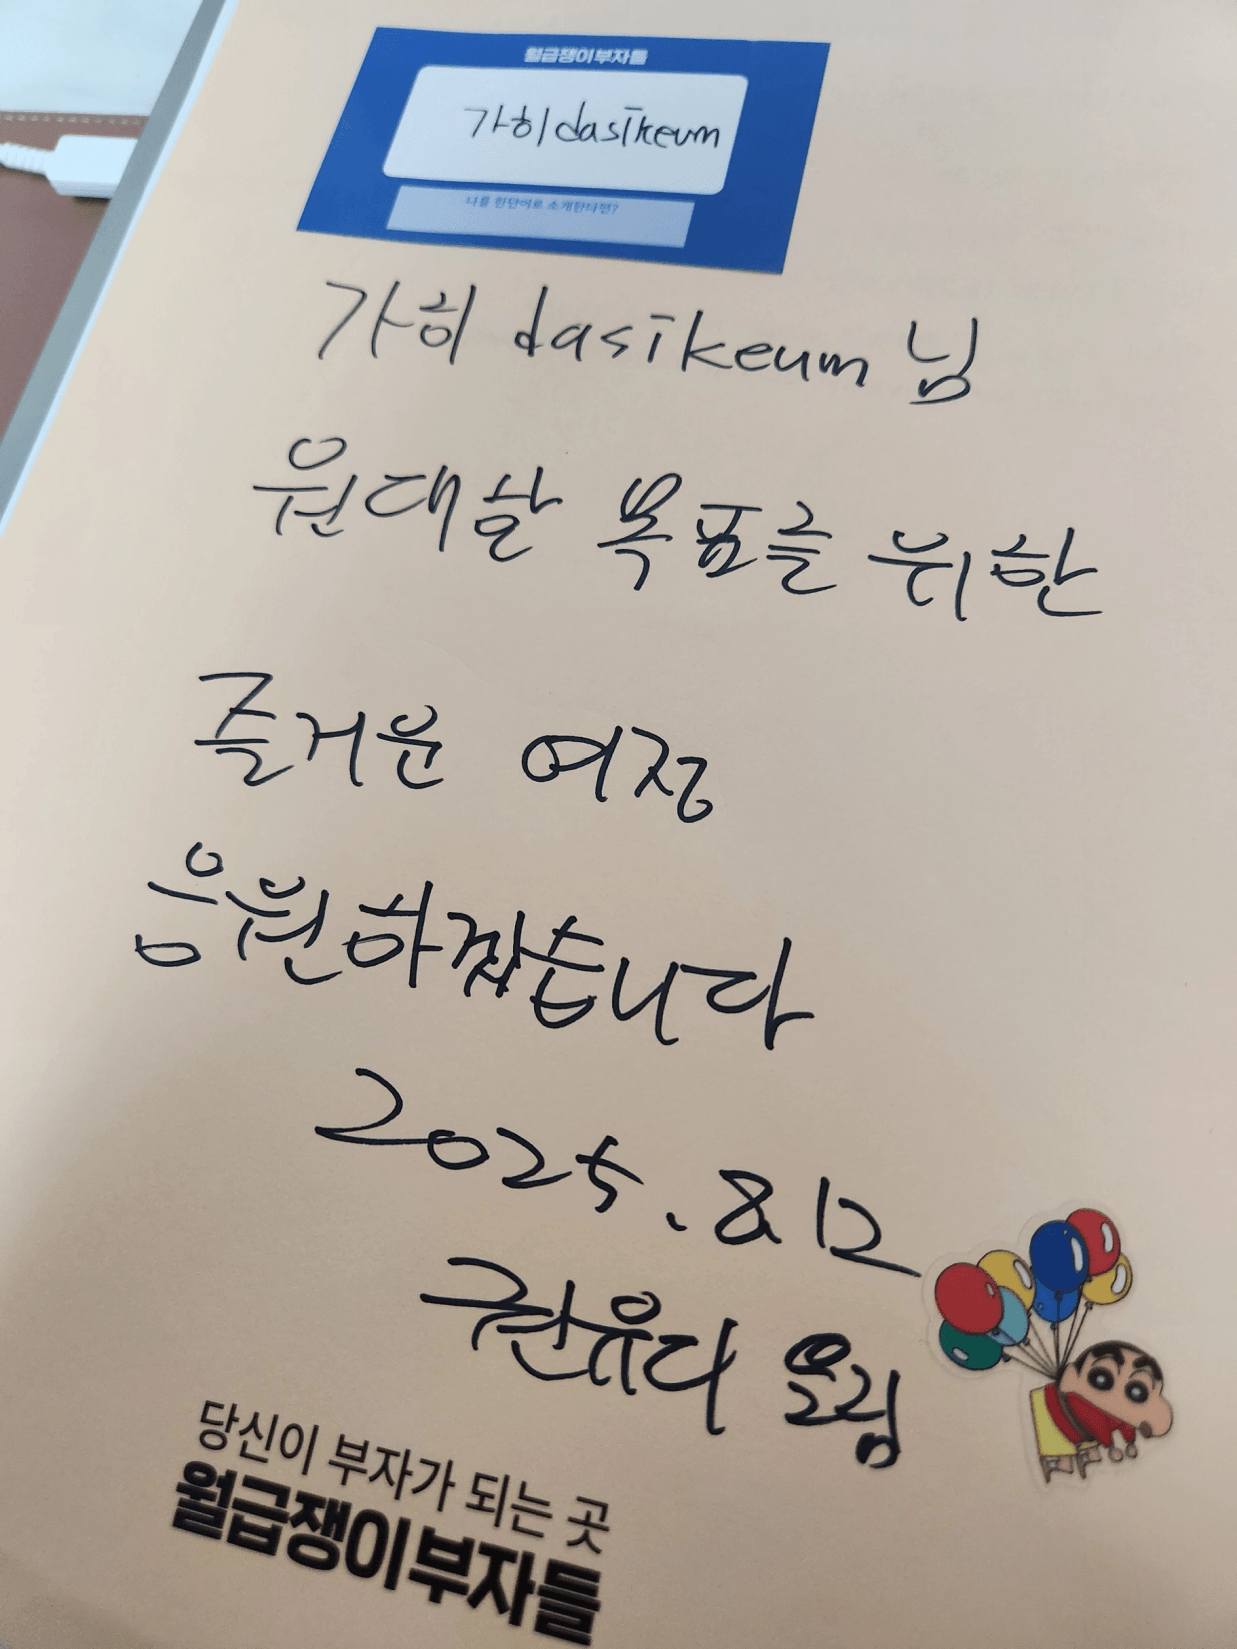 월급쟁이부자들
가히dasikeum
나를 한단어로 소개한다면?
가히 dasikeum 님
원대한 목표를 위한
즐거운 여정
응원하겠습니다
2025. 8. 12
권유디 올림
당신이 부자가 되는 곳
월급쟁이부자들